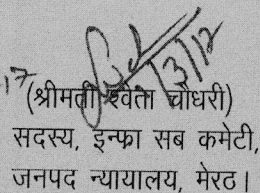 17
(श्रीमती श्वेता चौधरी)
सदस्य, इन्फ्रा सब कमेटी,
जनपद न्यायालय, मेरठ।